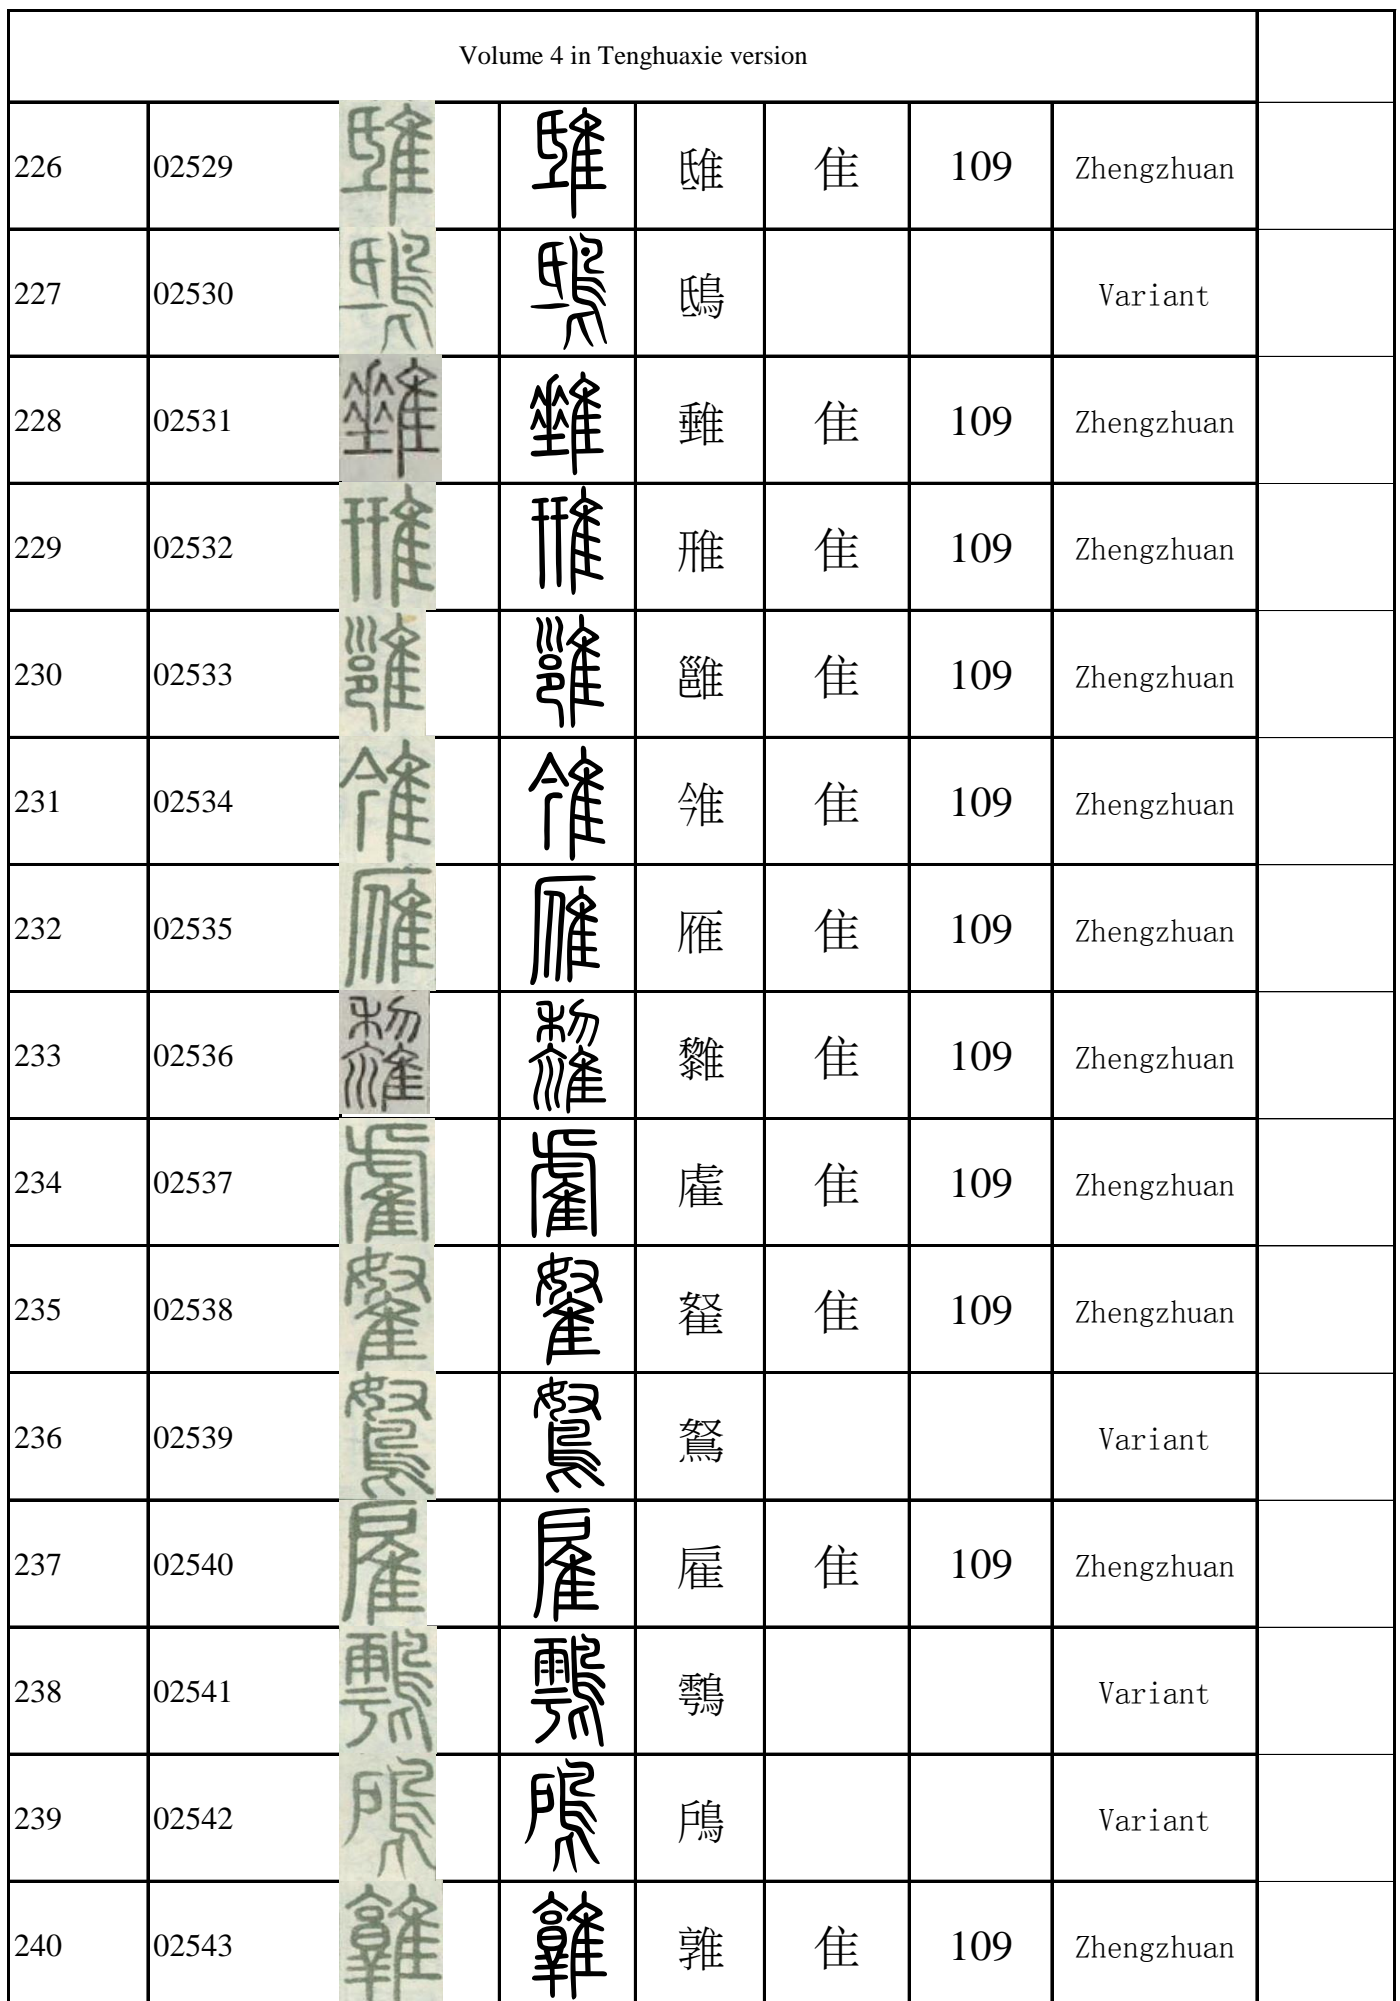 Volume 4 in Tenghuaxie version
226 02529 雎 隹 109 Zhengzhuan
227 02530 鴟 Variant
228 02531 隹 109 Zhengzhuan
229 02532 雃 隹 109 Zhengzhuan
230 02533 雝 隹 109 Zhengzhuan
231 02534 雂 隹 109 Zhengzhuan
232 02535 雁 隹 109 Zhengzhuan
233 02536 隹 109 Zhengzhuan
234 02537 隹 109 Zhengzhuan
235 02538 隹 109 Zhengzhuan
236 02539 Variant
237 02540 雇 隹 109 Zhengzhuan
238 02541 Variant
239 02542 鳸 Variant
240 02543 隹 109 Zhengzhuan